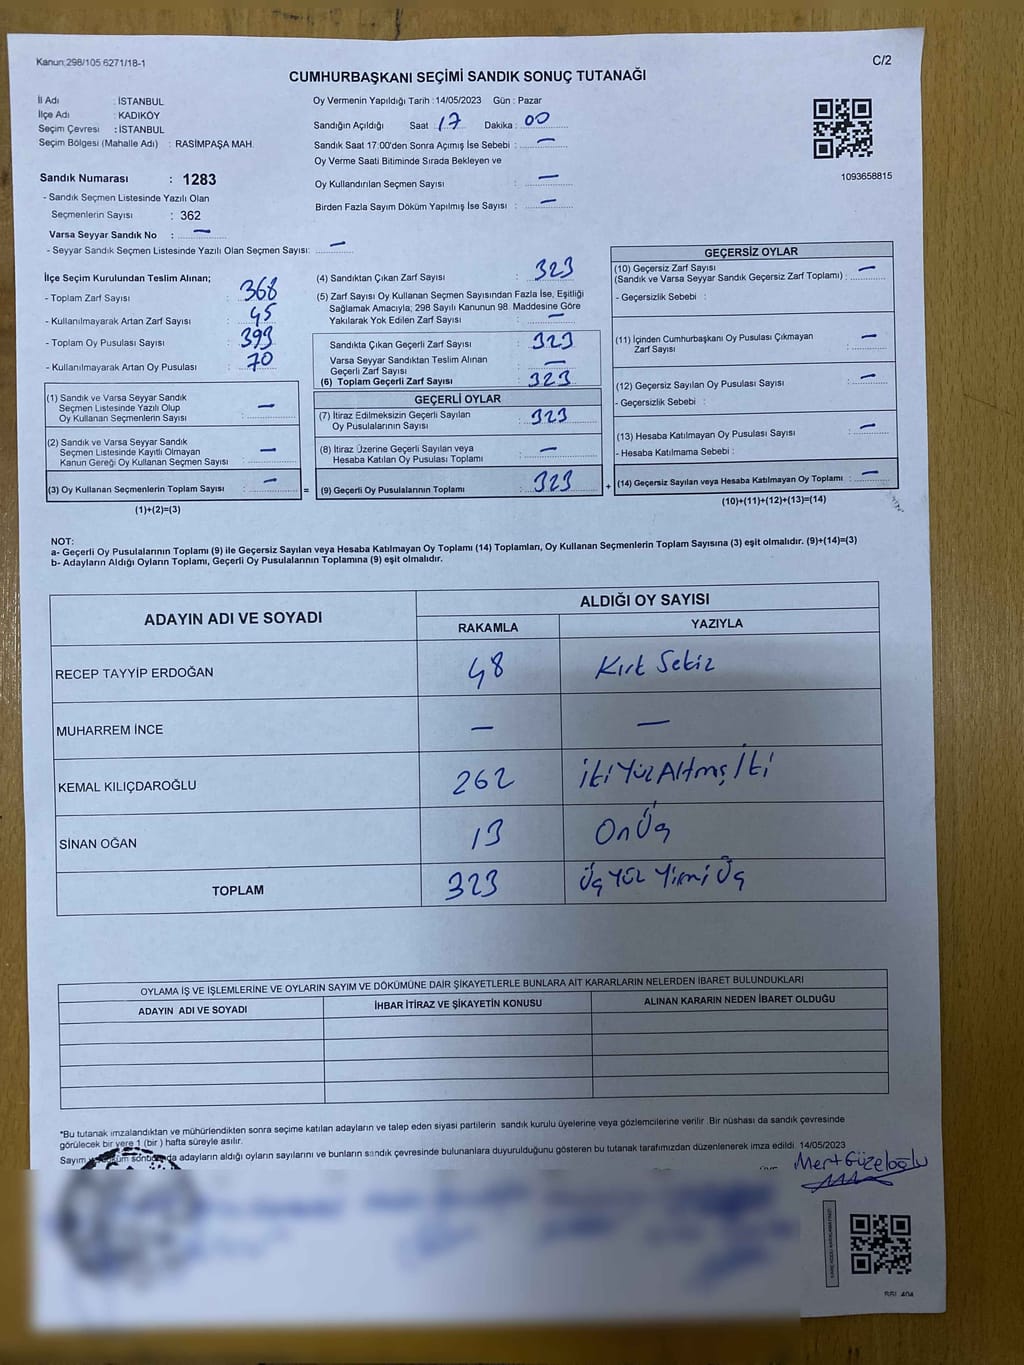 Kanun:298/105 6271/18-1
C/2
CUMHURBAŞKANI SEÇİMİ SANDIK SONUÇ TUTANAĞI
İl Adı : İSTANBUL
İlçe Adı : KADIKÖY
Seçim Çevresi : İSTANBUL
Seçim Bölgesi (Mahalle Adı) : RASİMPAŞA MAH.
Sandık Numarası : 1283
- Sandık Seçmen Listesinde Yazılı Olan
Seçmenlerin Sayısı : 362
Varsa Seyyar Sandık No : —
- Seyyar Sandık Seçmen Listesinde Yazılı Olan Seçmen Sayısı: —
Oy Vermenin Yapıldığı Tarih :14/05/2023 Gün : Pazar
Sandığın Açıldığı Saat : 17 Dakika : 00
Sandık Saat 17:00'den Sonra Açımış İse Sebebi : —
Oy Verme Saati Bitiminde Sırada Bekleyen ve
Oy Kullandırılan Seçmen Sayısı : —
Birden Fazla Sayım Döküm Yapılmış İse Sayısı : —
1093658815
İlçe Seçim Kurulundan Teslim Alınan;
- Toplam Zarf Sayısı : 368
- Kullanılmayarak Artan Zarf Sayısı : 45
- Toplam Oy Pusulası Sayısı : 393
- Kullanılmayarak Artan Oy Pusulası : 70
(1) Sandık ve Varsa Seyyar Sandık
Seçmen Listesinde Yazılı Olup
Oy Kullanan Seçmenlerin Sayısı : —
(2) Sandık ve Varsa Seyyar Sandık
Seçmen Listesinde Kayıtlı Olmayan
Kanun Gereği Oy Kullanan Seçmen Sayısı : —
(3) Oy Kullanan Seçmenlerin Toplam Sayısı : —
=
(1)+(2)=(3)
(4) Sandıktan Çıkan Zarf Sayısı : 323
(5) Zarf Sayısı Oy Kullanan Seçmen Sayısından Fazla İse, Eşitliği
Sağlamak Amacıyla; 298 Sayılı Kanunun 98. Maddesine Göre
Yakılarak Yok Edilen Zarf Sayısı : —
Sandıkta Çıkan Geçerli Zarf Sayısı : 323
Varsa Seyyar Sandıktan Teslim Alınan
Geçerli Zarf Sayısı : —
(6) Toplam Geçerli Zarf Sayısı : 323
GEÇERLİ OYLAR
(7) İtiraz Edilmeksizin Geçerli Sayılan
Oy Pusulalarının Sayısı : 323
(8) İtiraz Üzerine Geçerli Sayılan veya
Hesaba Katılan Oy Pusulası Toplamı : —
(9) Geçerli Oy Pusulalarının Toplamı : 323
+
GEÇERSİZ OYLAR
(10) Geçersiz Zarf Sayısı
(Sandık ve Varsa Seyyar Sandık Geçersiz Zarf Toplamı) : —
- Geçersizlik Sebebi :
(11) İçinden Cumhurbaşkanı Oy Pusulası Çıkmayan
Zarf Sayısı : —
(12) Geçersiz Sayılan Oy Pusulası Sayısı : —
- Geçersizlik Sebebi :
(13) Hesaba Katılmayan Oy Pusulası Sayısı : —
- Hesaba Katılmama Sebebi :
(14) Geçersiz Sayılan veya Hesaba Katılmayan Oy Toplamı : —
(10)+(11)+(12)+(13)=(14)
NOT:
a- Geçerli Oy Pusulalarının Toplamı (9) ile Geçersiz Sayılan veya Hesaba Katılmayan Oy Toplamı (14) Toplamları, Oy Kullanan Seçmenlerin Toplam Sayısına (3) eşit olmalıdır. (9)+(14)=(3)
b- Adayların Aldığı Oyların Toplamı, Geçerli Oy Pusulalarının Toplamına (9) eşit olmalıdır.
ADAYIN ADI VE SOYADI
ALDIĞI OY SAYISI
RAKAMLA YAZIYLA
RECEP TAYYİP ERDOĞAN 48 Kırk Sekiz
MUHARREM İNCE — —
KEMAL KILIÇDAROĞLU 262 İki Yüz Altmış İki
SİNAN OĞAN 13 On Üç
TOPLAM 323 Üç Yüz Yirmi Üç
OYLAMA İŞ VE İŞLEMLERİNE VE OYLARIN SAYIM VE DÖKÜMÜNE DAİR ŞİKAYETLERLE BUNLARA AİT KARARLARIN NELERDEN İBARET BULUNDUKLARI
ADAYIN ADI VE SOYADI İHBAR İTİRAZ VE ŞİKAYETİN KONUSU ALINAN KARARIN NEDEN İBARET OLDUĞU
*Bu tutanak imzalandıktan ve mühürlendikten sonra seçime katılan adayların ve talep eden siyasi partilerin sandık kurulu üyelerine veya gözlemcilerine verilir. Bir nüshası da sandık çevresinde
görülecek bir yere 1 (bir ) hafta süreyle asılır.
Sayım adayların aldığı oyların sayılarını ve bunların sandık çevresinde bulunanlara duyurulduğunu gösteren bu tutanak tarafımızdan düzenlenerek imza edildi. 14/05/2023
Mert Güzeloğlu